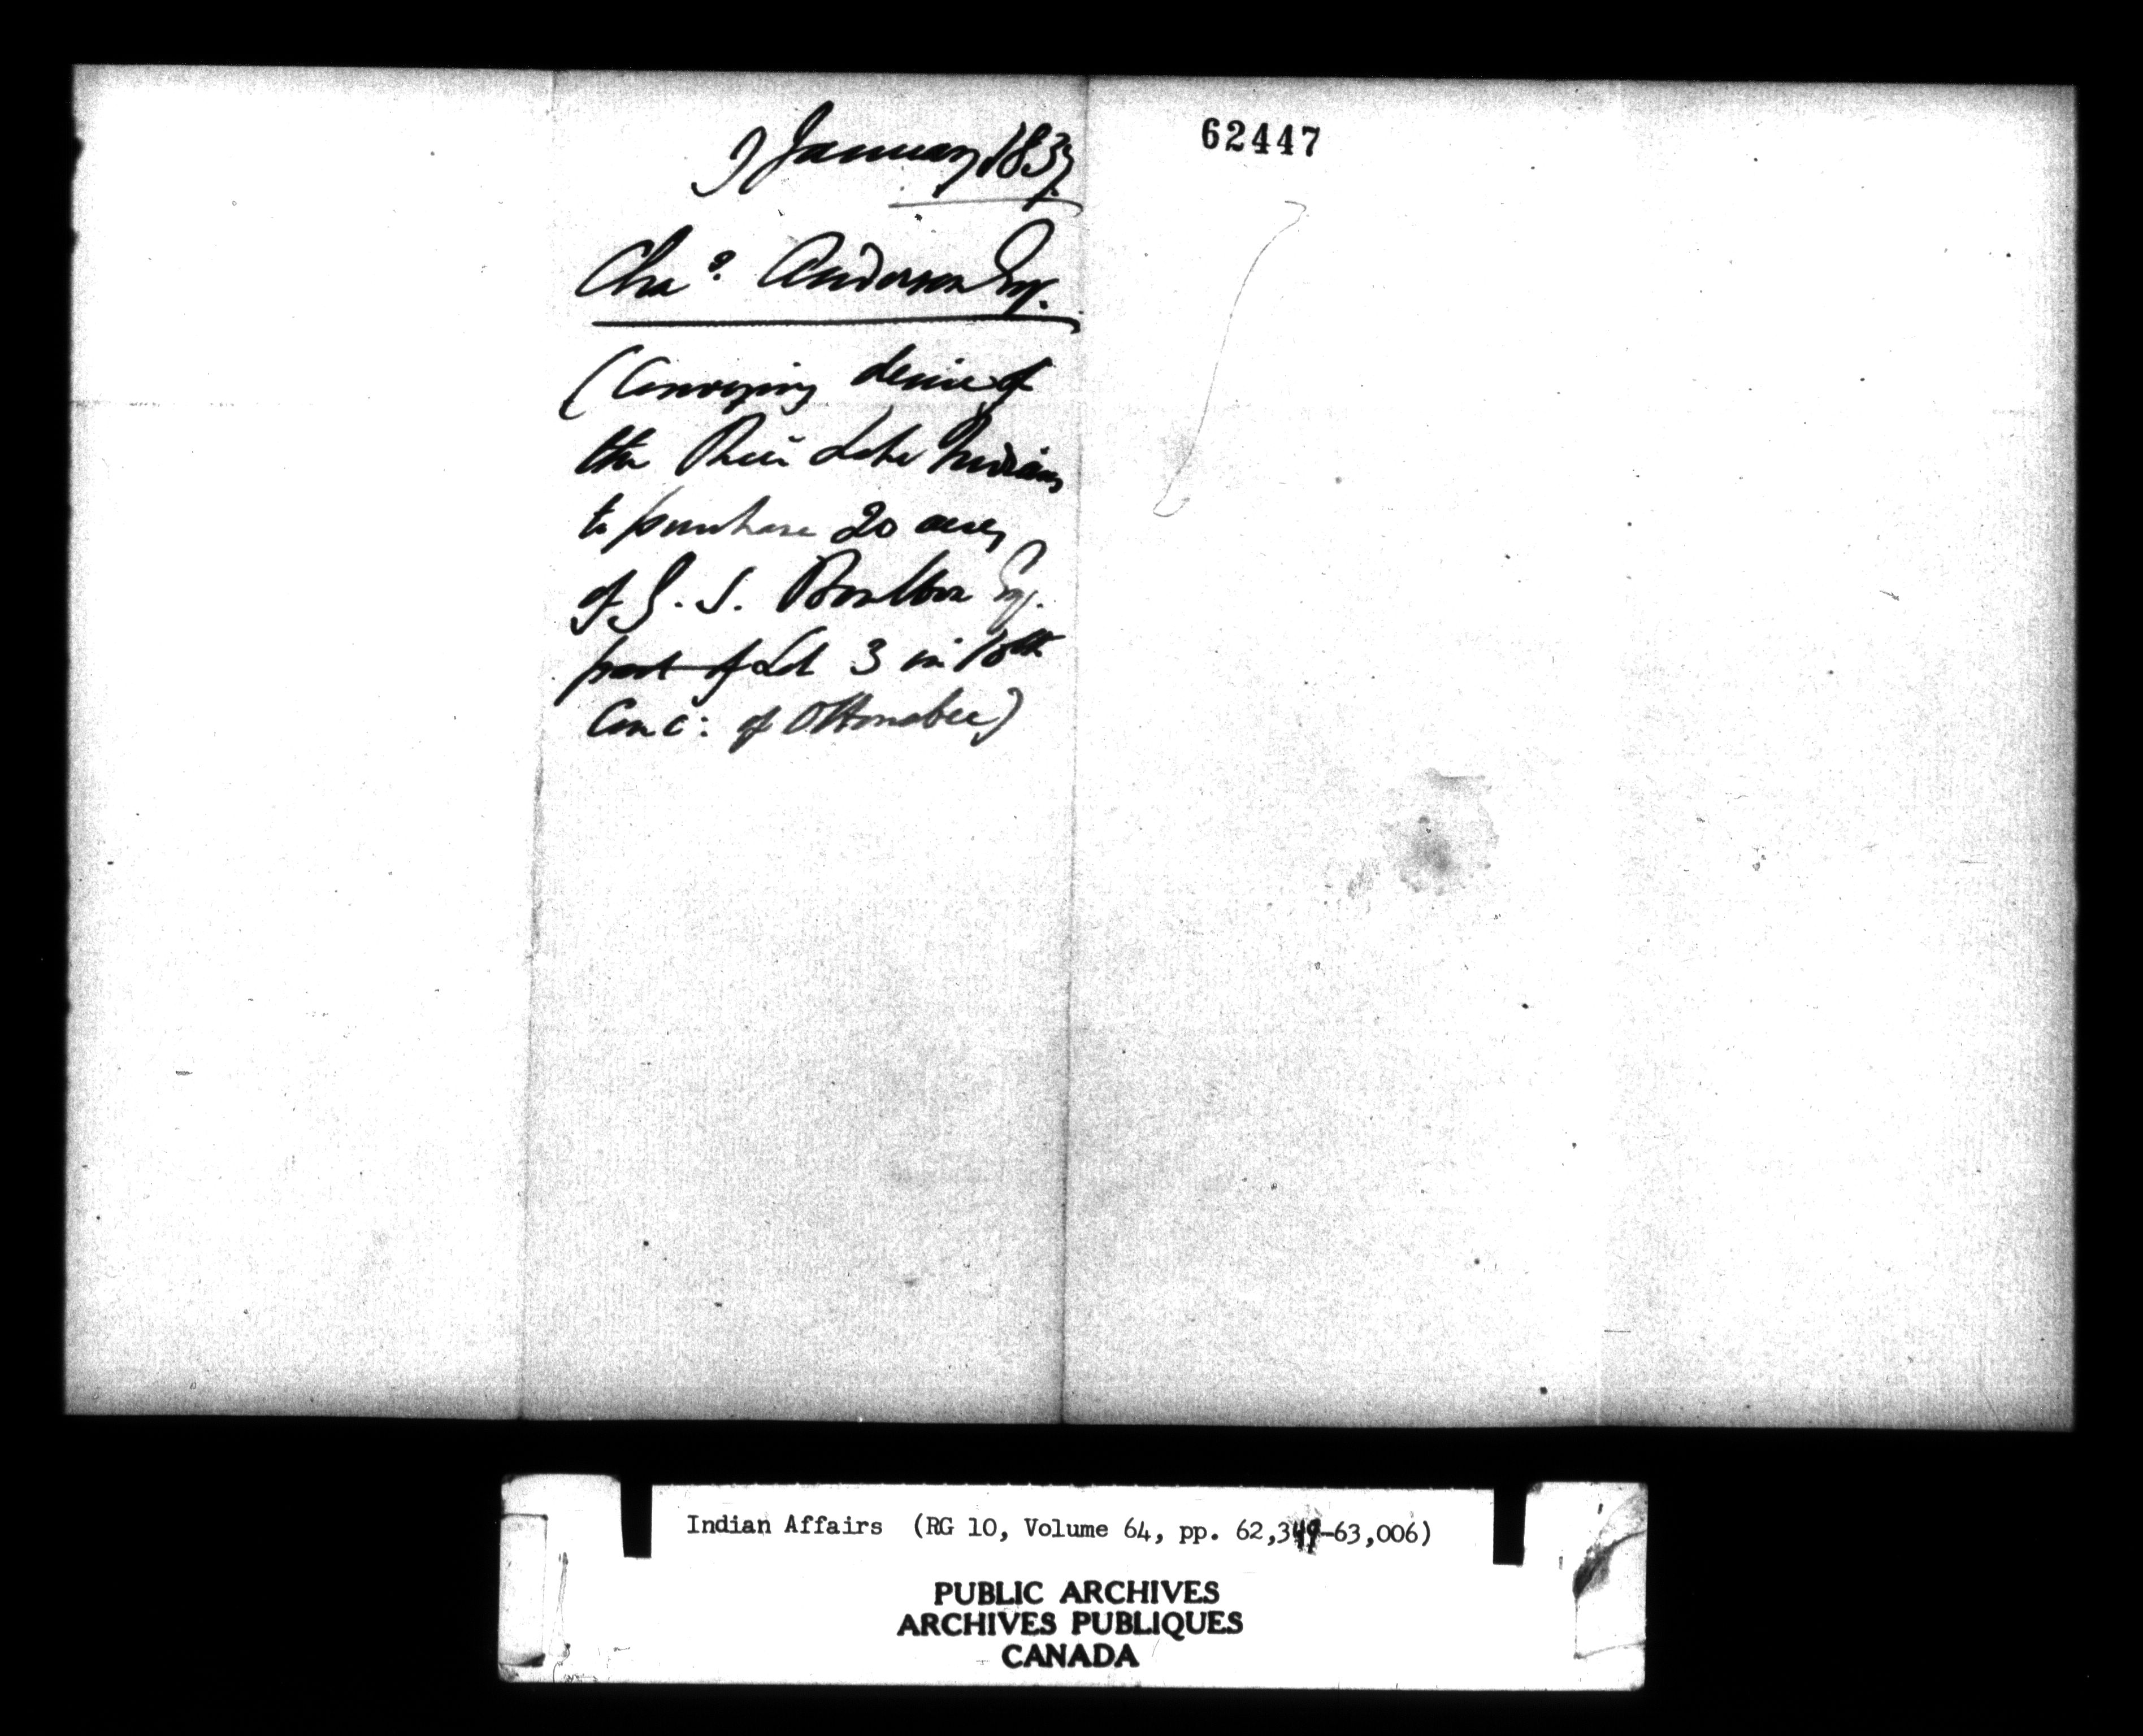 9 January 1837.
Chas. Anderson Esq.
(Conveying desire of
the Rice Lake Indians
to purchase 20 acres
of G. S. Boulton Esq.
part of Lot 3 in 10th
Conc: of Ottonabee)
62447
Indian Affairs (RG 10, Volume 64, pp. 62,349-63,006)
PUBLIC ARCHIVES
ARCHIVES PUBLIQUES
CANADA